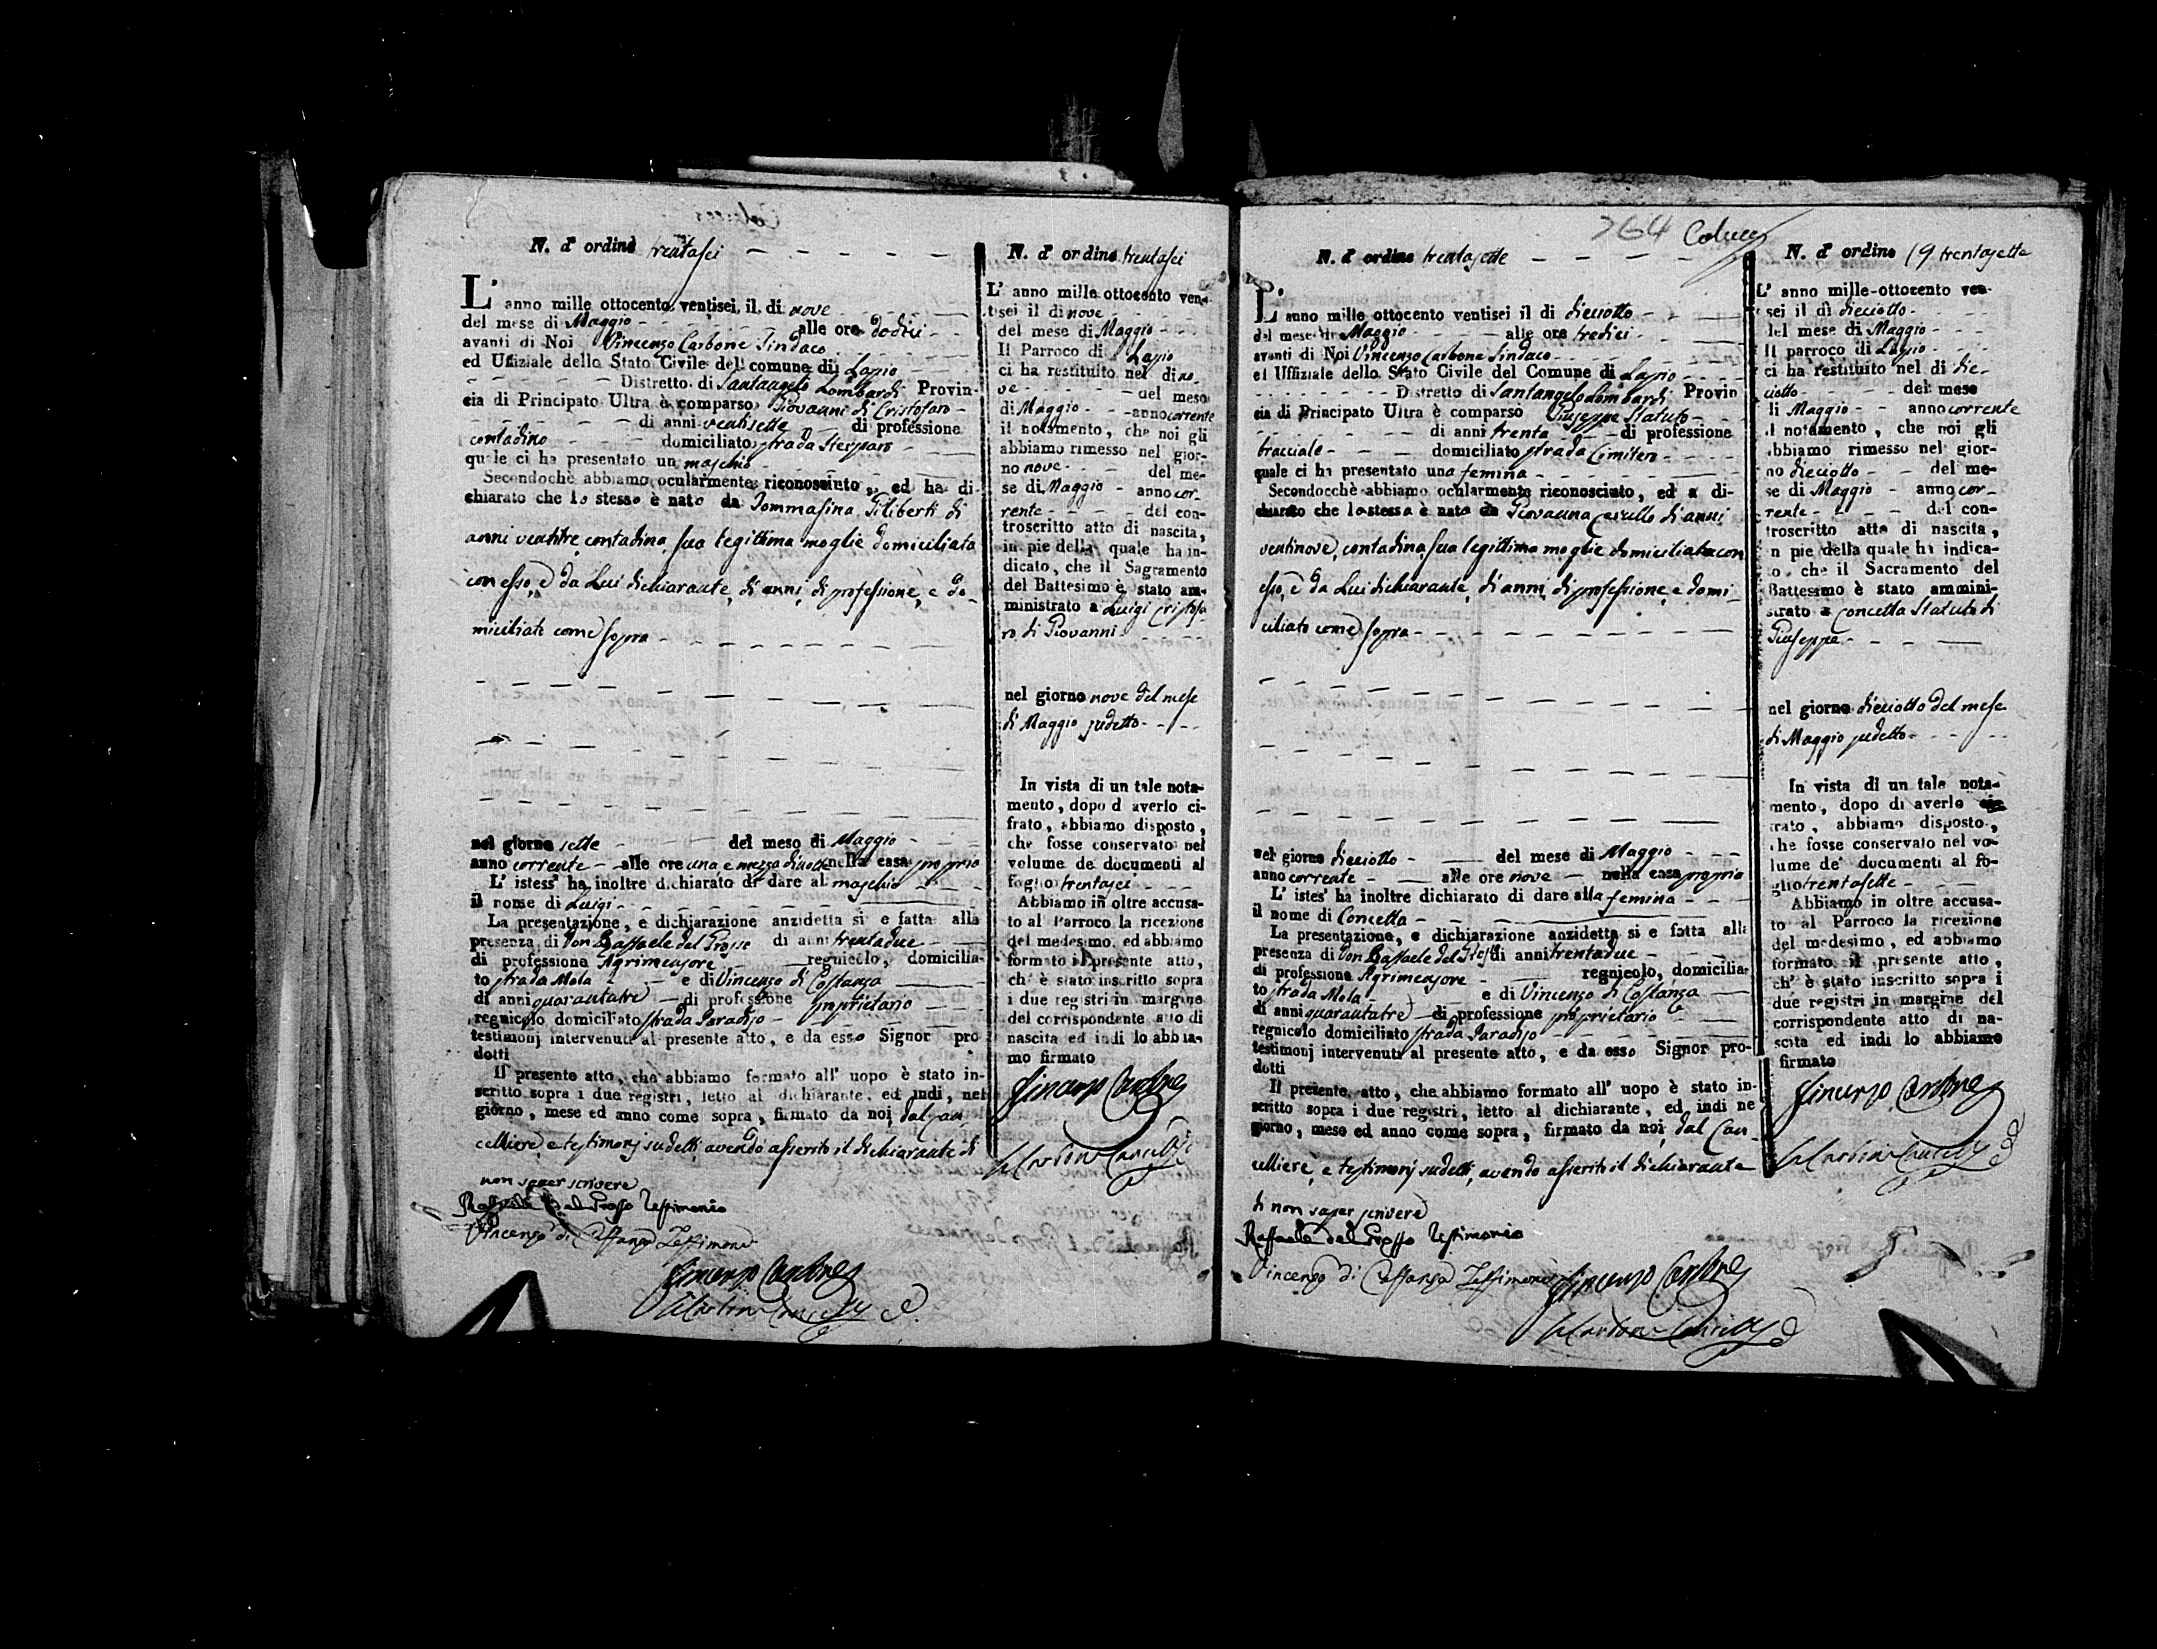 N. d' ordine trentasei
L' anno mille ottocento ventisei, il di nove
del mese di Maggio alle ore dodici
avanti di Noi Vincenzo Carbone Sindaco
ed Uffiziale dello Stato Civile del comune di Lapio
Distretto di Santangelo Lombardi Provin-
cia di Principato Ultra è comparso Giovanni di Cristofaro
di anni ventisette di professione
contadino domiciliato strada
quale ci ha presentato un maschio
Secondochè abbiamo ocularmente riconosciuto, ed ha di-
chiarato che lo stesso è nato da Tommasina Giliberti di
anni ventitre, contadina, sua legittima moglie domiciliata
con esso, e da Lui dichiarante, di anni, di professione, e do-
miciliati come sopra
nel giorno sette del mese di Maggio
anno corrente alle ore una e mezza di notte nella casa propria
L' istess' ha inoltre dichiarato di dare al maschio
il nome di Luigi
La presentazione, e dichiarazione anzidetta si e fatta alla
presenza di Don Raffaele del Grosso di anni trentadue
di professione Agrimensore regnicolo, domicilia-
to strada Mola e di Vincenzo di Costanza
di anni quarantatre di professione proprietario
regnicolo domiciliato strada Paradiso
testimonj intervenuti al presente atto, e da esso Signor pro
dotti
Il presente atto, che abbiamo formato all' uopo è stato in-
scritto sopra i due registri, letto al dichiarante, ed indi, nel
giorno, mese ed anno come sopra, firmato da noi, dal Can-
celliere, e testimonj sudetti, avendo asserito il dichiarante di
non saper scrivere
Raffaele del Grosso Testimonio
Vincenzo di Costanza Testimone
Vincenzo Carbone
N. d' ordine trentasei
L' anno mille ottocento ven-
tisei il di nove
del mese di Maggio
Il Parroco di Lapio
ci ha restituito nel di no-
ve del mese
di Maggio anno corrente
il notamento, che noi gli
abbiamo rimesso nel gior-
no nove del me-
se di Maggio anno cor-
rente del con-
troscritto atto di nascita,
in pie della quale ha in-
dicato, che il Sagramento
del Battesimo è stato am-
ministrato a Luigi Cristofa-
ro di Giovanni
nel giorno nove del mese
di Maggio sudetto
In vista di un tale nota-
mento, dopo d averlo ci-
frato, abbiamo disposto,
che fosse conservato nel
volume de documenti al
foglio trentasei
Abbiamo in oltre accusa-
to al Parroco la ricezione
del medesimo, ed abbiamo
formato il presente atto,
ch' è stato inscritto sopra
i due registri in margine
del corrispondente atto di
nascita ed indi lo abbia-
mo firmato
Vincenzo Carbone
764 Colucci
N. d' ordine trentasette
L' anno mille ottocento ventisei il di dieciotto
del mese di Maggio alle ore tredici
avanti di Noi Vincenzo Carbone Sindaco
el Uffiziale dello Stato Civile del Comune di Lapio
Distretto di Santangelo Lombardi Provin
cia di Principato Ultra è comparso Giuseppe Statuto
di anni trenta di professione
bracciale domiciliato strada Cimitero
quale ci ha presentato una femina
Secondocchè abbiamo ocularmente riconosciuto, ed a di-
chiarato che la stessa è nata da Giovanna Carullo di anni
ventinove, contadina, sua legittima moglie domiciliata con
esso, e da Lui dichiarante, di anni, di professione, e domi-
ciliato come sopra
nel giorno dieciotto del mese di Maggio
anno corrente alle ore nove nella casa propria
L' istes' ha inoltre dichiarato di dare alla femina
il nome di Concetta
La presentazione, e dichiarazione anzidetta si e fatta alla
presenza di Don Raffaele del Grosso di anni trentadue
di professione Agrimensore regnicolo, domicilia-
to strada Mola e di Vincenzo di Costanza
di anni quarantatre di professione proprietario
regnicolo domiciliato strada Paradiso
testimonj intervenuti al presente atto, e da esso Signor pro-
dotti
Il presente atto, che abbiamo formato all' uopo è stato in-
scritto sopra i due registri, letto al dichiarante, ed indi ne
giorno, mese ed anno come sopra, firmato da noi, dal Can-
celliere, e testimonj sudetti, avendo asserito il dichiarante
di non saper scrivere
Raffaele del Grosso Testimonio
Vincenzo di Costanza Testimone
Vincenzo Carbone
N. d' ordine 19 trentasette
L' anno mille-ottocento ven-
sei il di dieciotto
del mese di Maggio
Il parroco di Lapio
ci ha restituito nel di die-
ciotto del mese
di Maggio anno corrente
il notamento, che noi gli
abbiamo rimesso nel gior-
no dieciotto del me-
se di Maggio anno cor-
rente del con-
troscritto atto di nascita,
n pie della quale ha indica-
to, che il Sacramento del
Battesimo è stato ammini-
strato a Concetta Statuto di
Giuseppe
nel giorno dieciotto del mese
di Maggio sudetto
In vista di un tale nota-
mento, dopo di averlo cia-
frato, abbiamo disposto,
che fosse conservato nel vo-
lume de' documenti al fo-
glio trentasette
Abbiamo in oltre accusa-
to al Parroco la ricezione
del medesimo, ed abbiamo
formato il presente atto,
ch' è stato inscritto sopra i
due registri in margine del
corrispondente atto di na-
scita ed indi lo abbiamo
firmato
Vincenzo Carbone